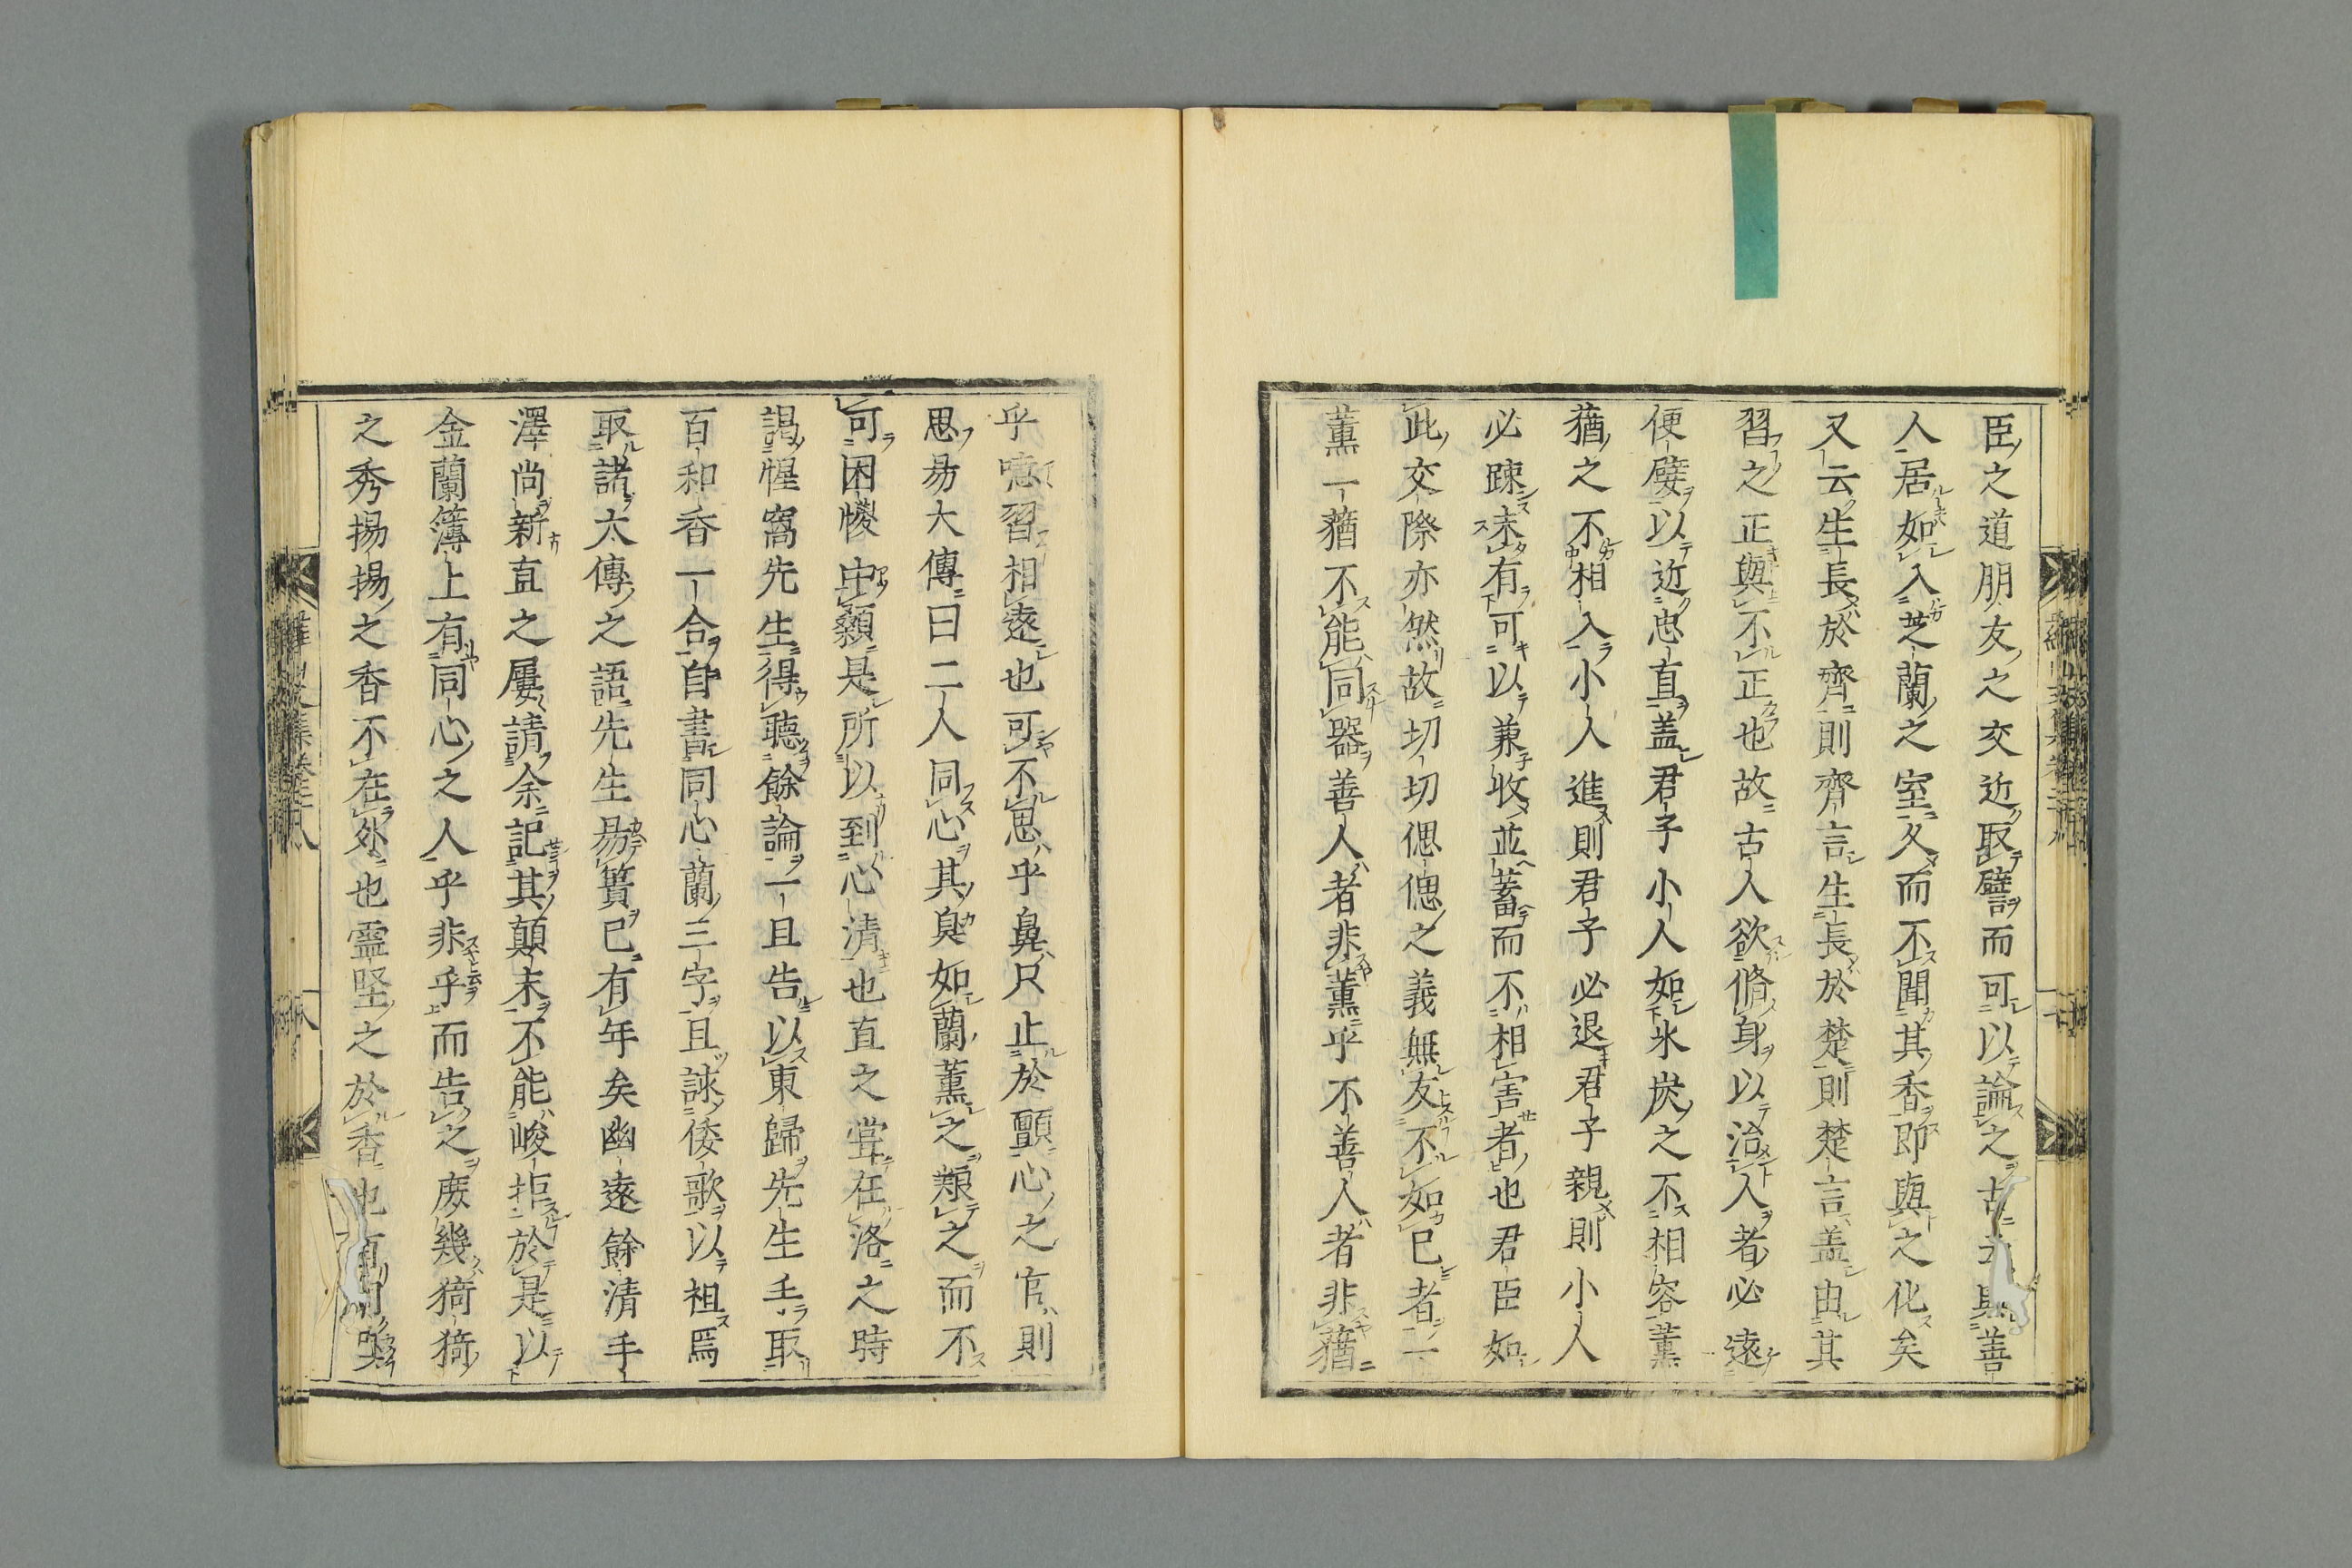 臣之道朋友之交近取譬而可以論之古云與善
人居如入芝蘭之室久而不聞其香即與之化矣
又云生長於齊則齊言生長於楚則楚言盖由其
習之正與不正也故古人欲脩身以治人者必遠
便嬖以近忠直盖君子小人如氷炭之不相容薰
蕕之不相入小人進則君子必退君子親則小人
必踈未有可以兼收並蓄而不相害者也君臣如
此交際亦然故切切偲偲之義無友不如已者一
薰一蕕不能同器善人者非薰乎不善人者非蕕
乎噫習相遠也可不思乎鼻只止於顫心之官則
思易大傳曰二人同心其臭如蘭薰之類之而不
可困惾中顙是所以到心清也直之甞在洛之時
謁惺窩先生得聽餘論一旦告以東歸先生壬取
百和香一合自書同心蘭三字且詠倭歌以袓焉
取諸太傳之語先生易簀已有年矣幽遠餘清手
澤尚新直之屢請余記其顛末不能峻拒於是以
金蘭簿上有同心之人乎非乎而告之庻幾猗猗
之秀揚揚之香不在外也霊坚之於香也